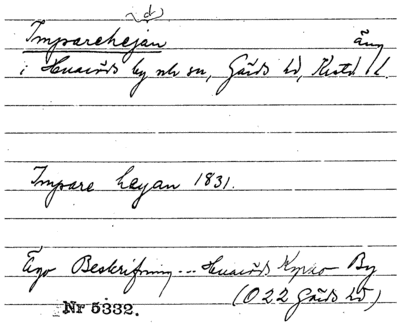 (d)
Imparehejan äng
i Huaröds by och sn, Gärds hd, Kristd l.
Impare heyan 1831.
Ägo Beskrifning... Huaröds Kyrko By
(O 22 Gärds hd)
Nr 5332.